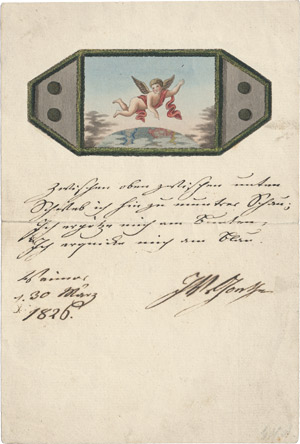 Zwischen oben zwischen unten
Schweb ich hin zu muntrer Schau,
Ich ergötze mich am Bunten,
Ich erquicke mich am Blau.
Weimar
d. 30 März
1826.
JWvGoethe